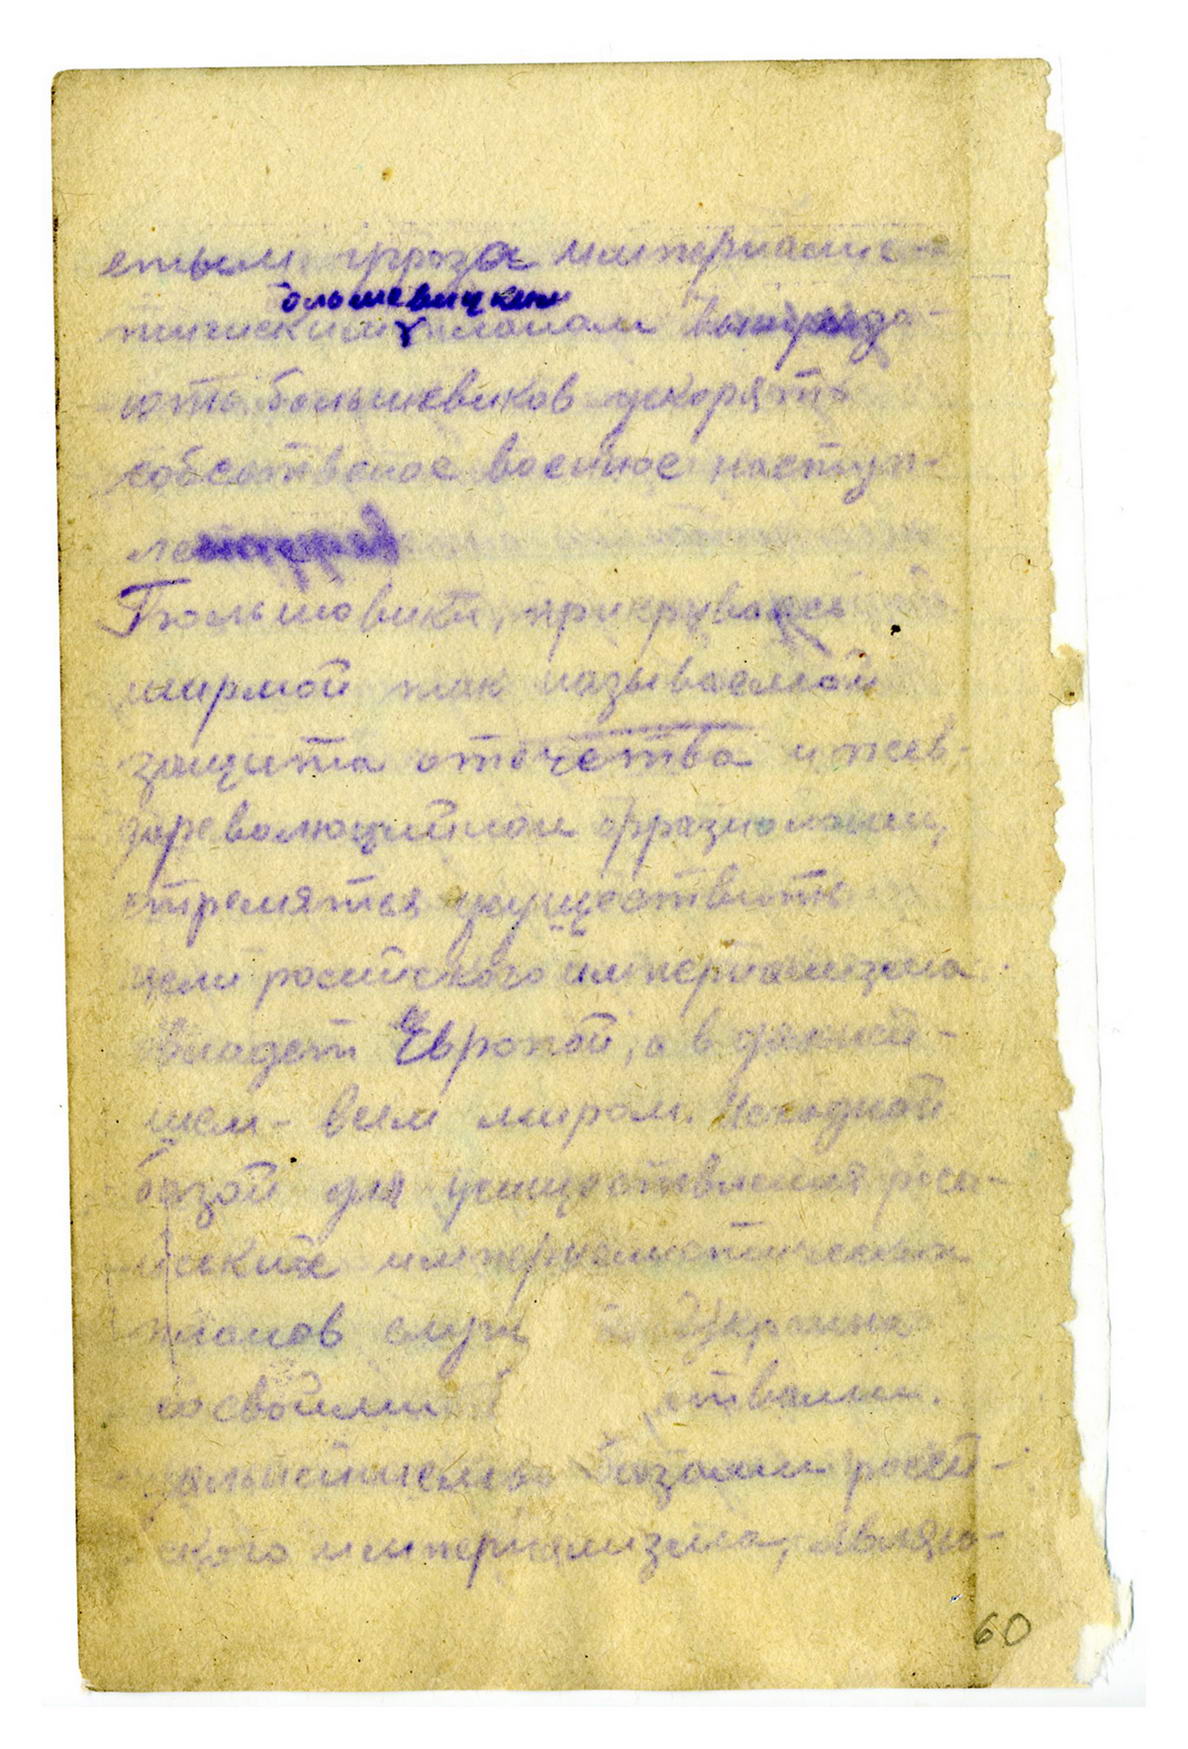 етьем угроза империалис-
большевицким
тическим планам вынужда-
ють большевиков ускорять
собственое военное наступ-
ле
Большовики, прикрываясь
ширмой так называемой
защита отечества и псев-
дореволюцийной фразиологии,
стремятся усуществить
цели росийского империализма
владет Европой, а в дальней-
шем - всем миром. Исходной
базой для усуществления роси-
йских империалистических
планов служ Украина
со своими ствами.
дальнейшемы базами росей-
ского империализма, являю-
60